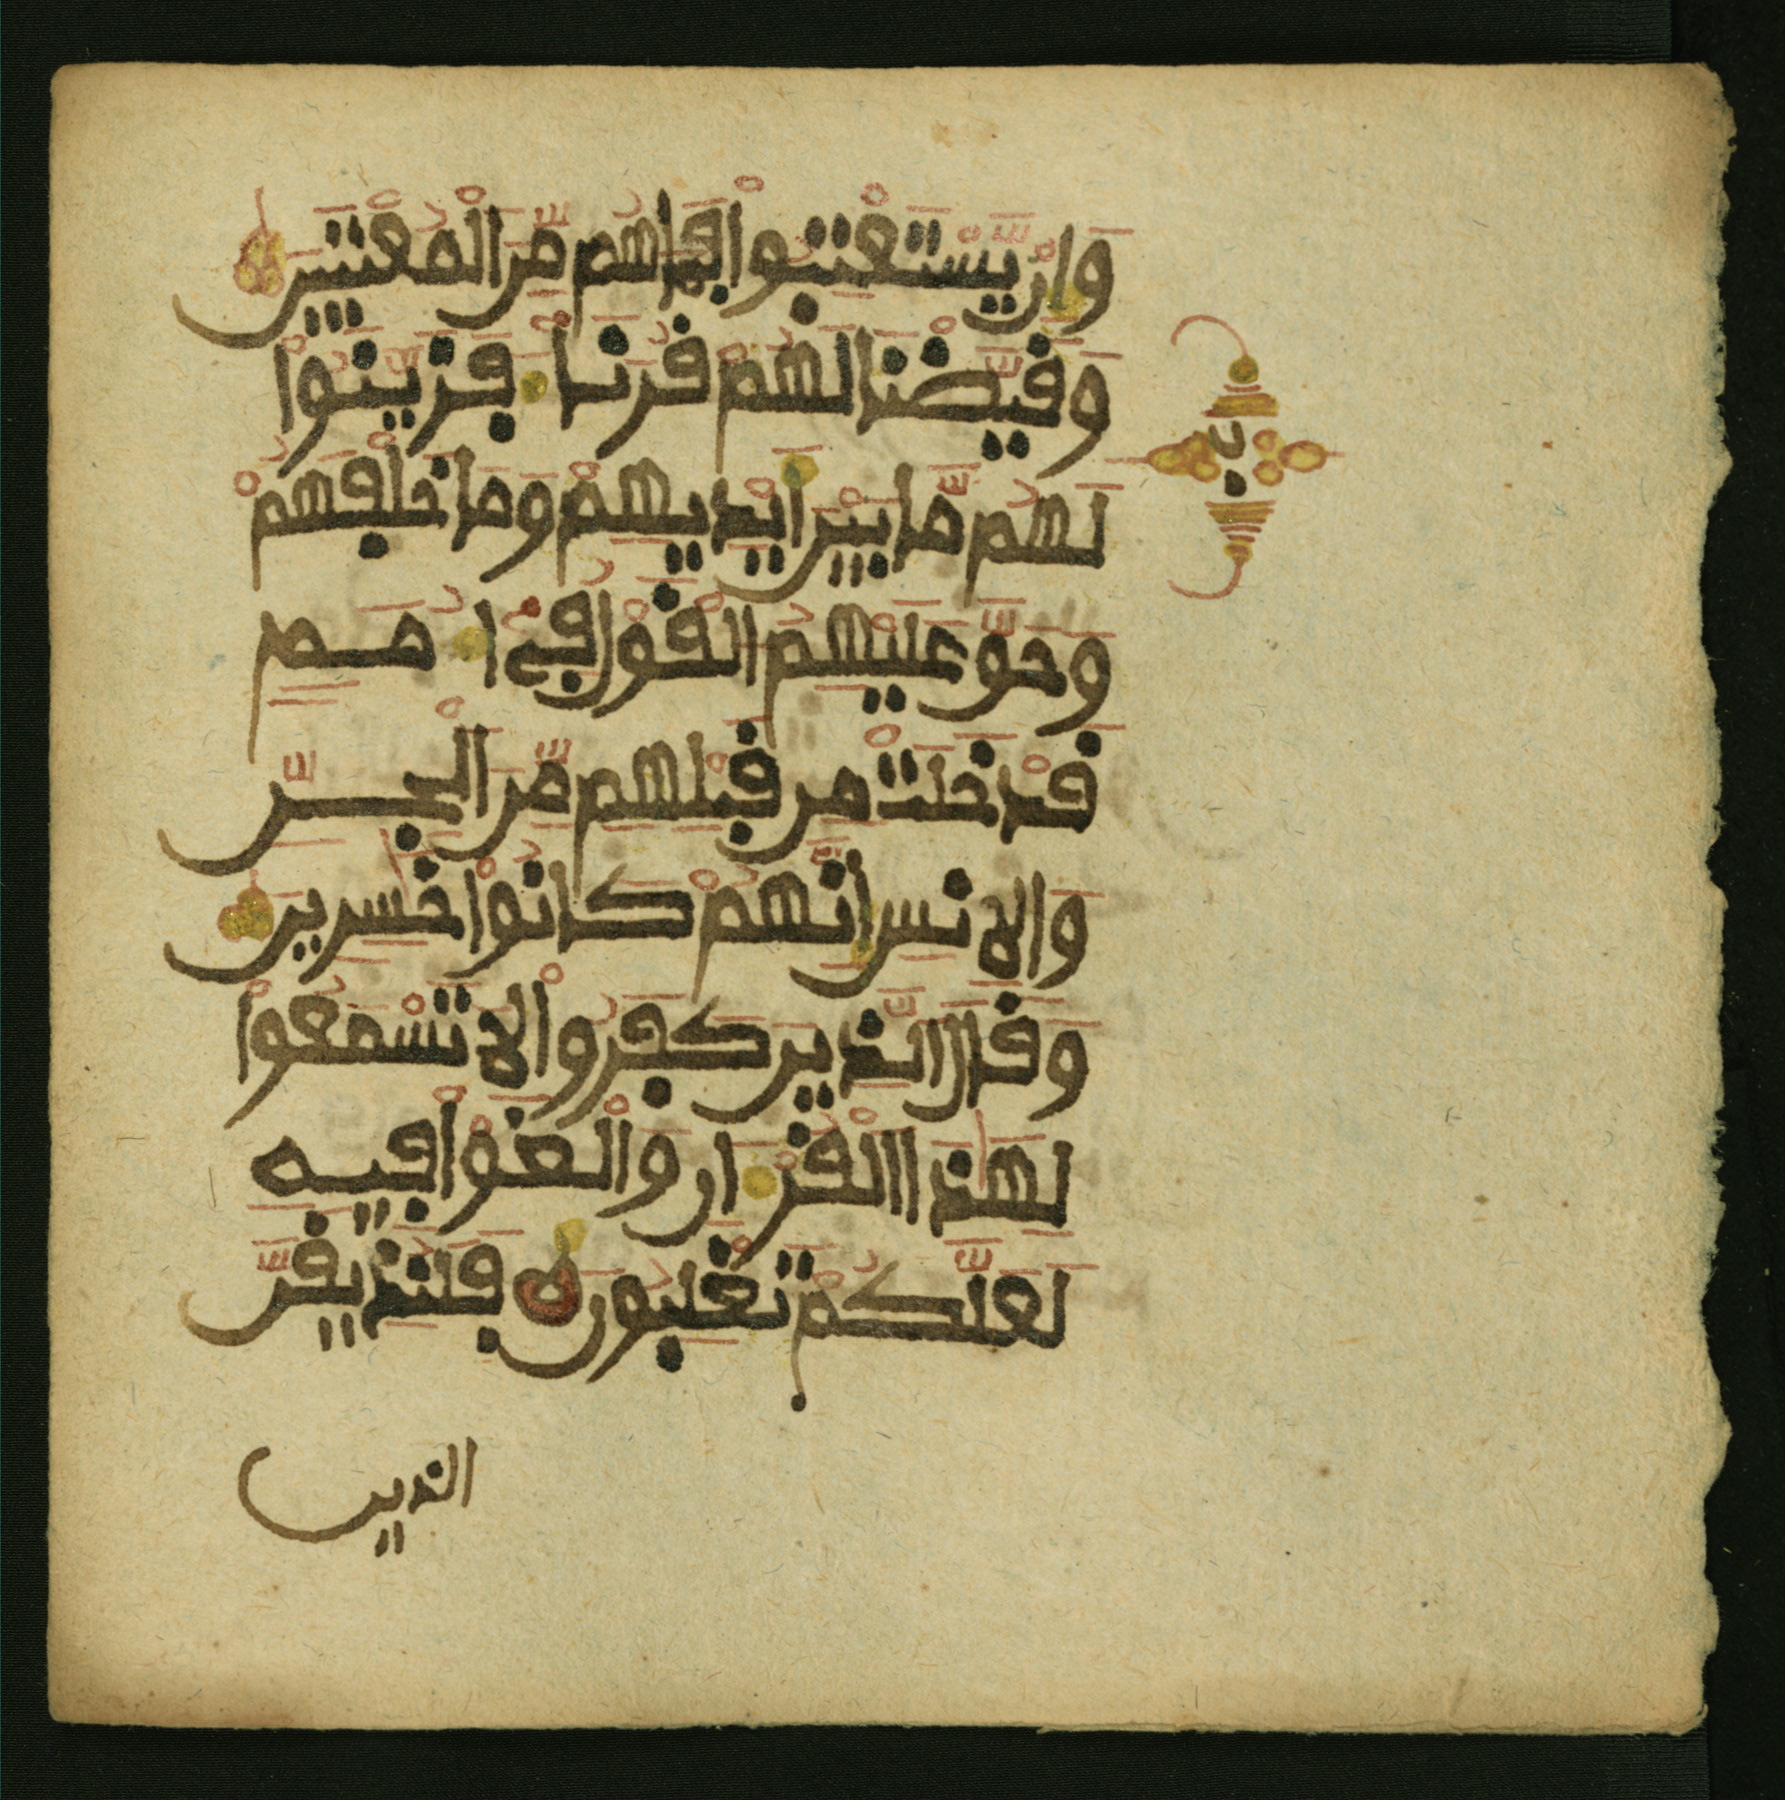 وَإِن يَّسْتَعْتِبُوا فَمَا هُم مِّنَ الْمُعْتَبِينَ
وَقَيَّضْنَا لَهُمْ قُرَنَاءَ فَزَيَّنُوا
لَهُم مَّا بَيْنَ أَيْدِيهِمْ وَمَا خَلْفَهُمْ
وَحَقَّ عَلَيْهِمُ الْقَوْلُ فِي أُمَمٍ
قَدْ خَلَتْ مِن قَبْلِهِم مِّنَ الْجِنِّ
وَالْإِنسِ إِنَّهُمْ كَانُوا خَٰسِرِينَ
وَقَالَ الَّذِينَ كَفَرُوا لَا تَسْمَعُوا
لِهَٰذَا الْقُرْءَانِ وَالْغَوْا فِيهِ
لَعَلَّكُمْ تَغْلِبُونَ ه فَلَنُذِيقَنَّ
الذين